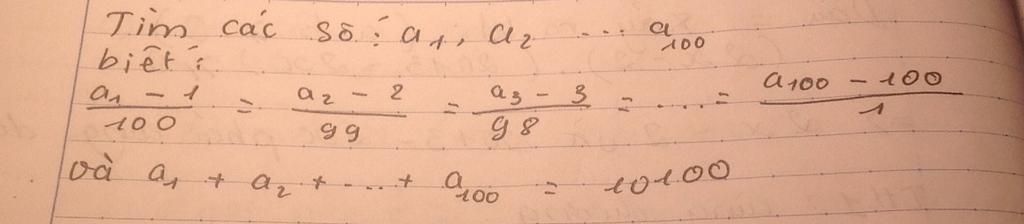 Tìm các số : a₁, a₂ ... a₁₀₀
biết :
(a₁ - 1)/100 = (a₂ - 2)/99 = (a₃ - 3)/98 = .... = (a₁₀₀ - 100)/1
và a₁ + a₂ + ... + a₁₀₀ = 10100